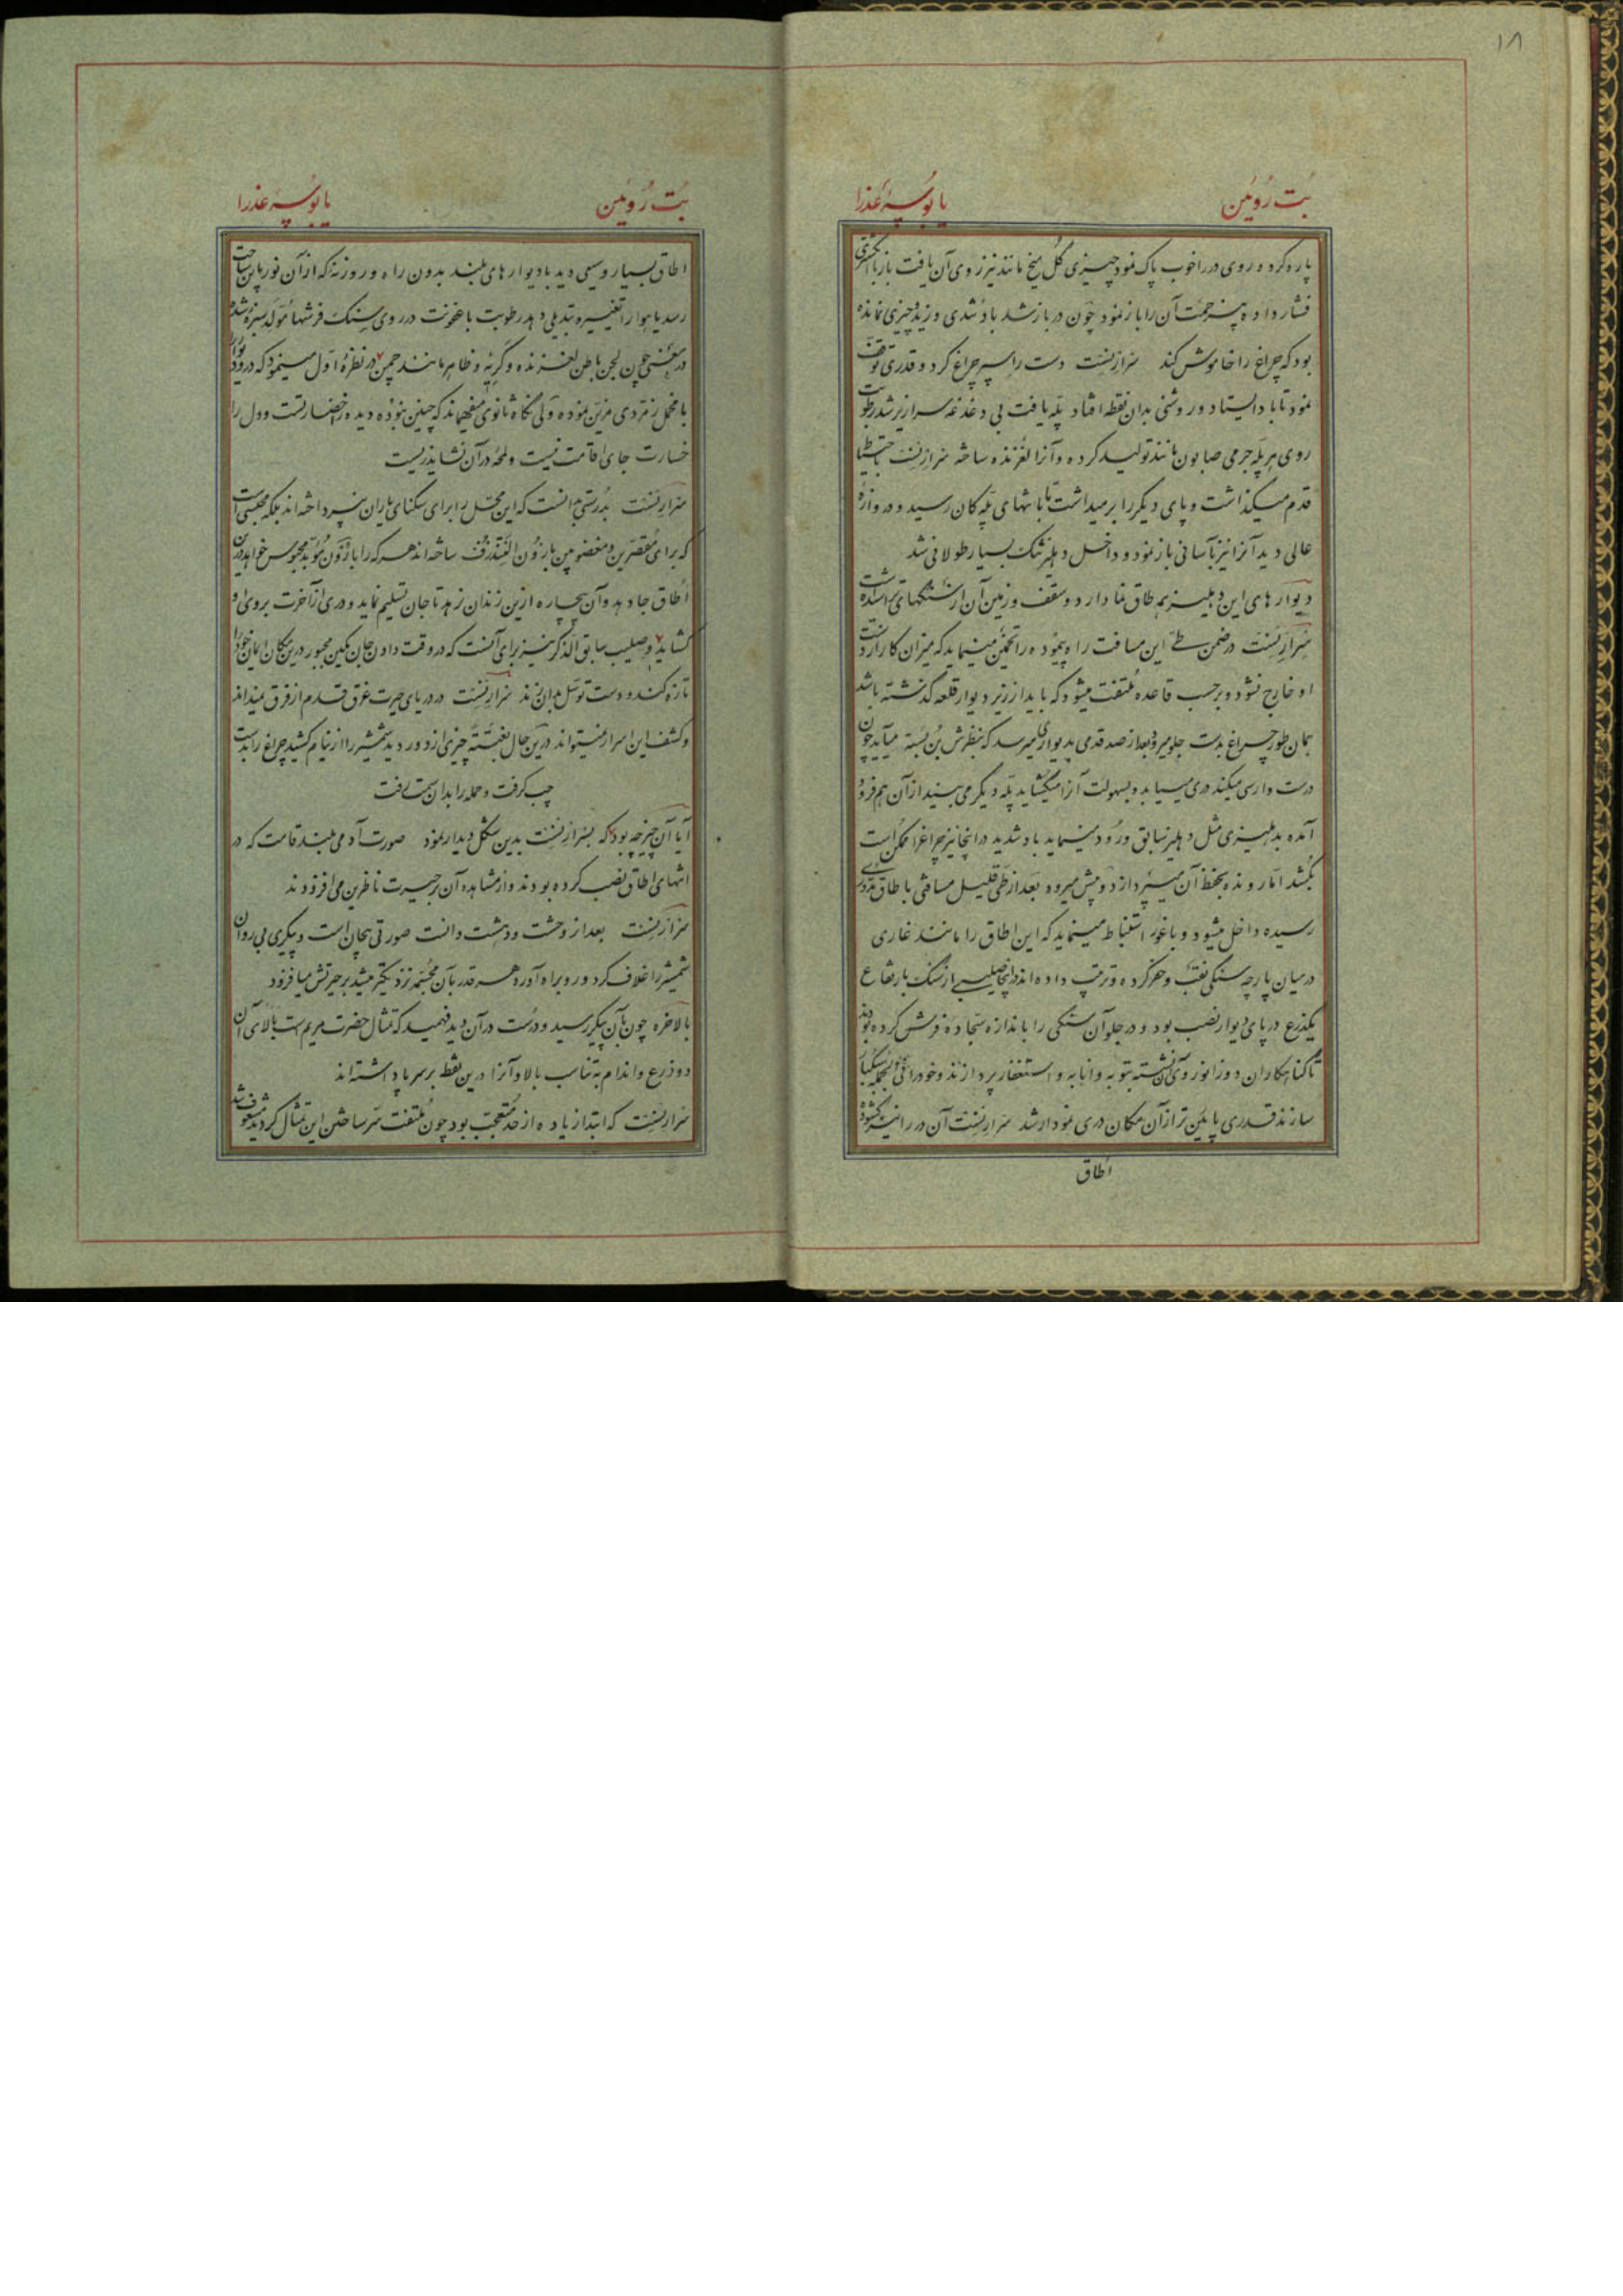 ۱۸
بُت رُوئین یا بُوسهٔ عَذرا
پاره کرد و روی در را خوب پاک نمود چیزی گل میخ مانند نیز روی آن یافت باز با انگشتری
فشار داده بیزحمت آن را باز نمود چون در باز شد باد تندی وزید چیزی نمانده
بود که چراغ را خاموش کند سرارنست دست را سپر چراغ کرد و قدری توقف
نمود تا باد ایستاد و روشنی بدان نقطه افتاد پله یافت بی دغدغه سرازیر شد رطوبت
روی هر پله جرمی صابون مانند تولید کرده و آنرا لغزنده ساخته سرارنست باحتیاط
قدم میگذاشت و پای دیگر را برمیداشت تا بانتهای پله کان رسید و دروازهٔ
عالی دید آنرا نیز بآسانی باز نمود و داخل دهلیز تنگ بسیار طولانی شد
دیوارهای این دهلیز همه طاق نما دارد و سقف و زمین آن از سنگهای تراشیده است
سرارنست در ضمن طی این مسافت راه پیموده را تخمین مینماید که میزان کار از دست
او خارج نشود و برحسب قاعده ملتفت میشود که باید از زیر دیوار قلعه گذشته باشد
همان طور چراغ بدست جلو میرود بعد از صد قدمی بدیواری میرسد که بنظرش بن بسته میآید چون
درست وارسی میکند دری مییابد و بسهولت آنرا میگشاید پله دیگر می بیند از آن هم فرود
آمده بدهلیزی مثل دهلیز سابق ورود مینماید باد شدید در اینجا نیز چراغ را ممکن است
بکشد اما رونده بحفظ آن میپردازد و پیش میرود بعد از طی قلیل مسافتی باطاق مدوری
رسیده داخل میشود و باغور استنباط مینماید که این اطاق را مانند غاری
در میان پارچه سنگی نقب و حفر کرده و ترتیب داده اند در اینجا صلیبی از سنگ بارتفاع
یکذرع در پای دیوار نصب بود و در جلو آن سنگی را باندازه سجاده فرش کرده بودند
تا گناهکاران دو زانو روی آن نشسته بتوبه و انابه و استغفار پردازند و خود را فی الجمله سبکبار
سازند قدری پائین تر از آن مکان دری نمودار شد سرارنست آن در را نیز گشوده
اطاق
بُت رُوئین یا بُوسهٔ عَذرا
اطاق بسیار وسیعی دید با دیوارهای بلند بدون راه و روزنه که از آن نور باین ساحت
رسد یا هوا را تغییر و تبدیلی دهد رطوبت با عفونت در روی سنگ فرشها مولد سبزه شده
در معنی چون لجن باطن لغزنده و کریه و ظاهر مانند چمن در نظرهٔ اول مینمود که در و دیوار را
با مخمل زمردی مزین نموده ولی نگاه ثانوی میفهماند که چنین نبوده دیده را خضارتست و دل را
خسارت جای اقامت نیست و لمحهٔ در آن نشاید زیست
سرارنست بدرستی دانست که این محل را برای سکنای یاران نپرداخته اند بلکه محبسی است
که برای مقصرین و مغضوبین بارون الفتدرف ساخته اند هر که را بارون مؤبد محبوس خواهد درین
اطاق جا دهد و آن بیچاره ازین زندان نرهد تا جان تسلیم نماید و دری از آخرت بروی او
گشاید و صلیب سابق الذکر نیز برای آنست که در وقت دادن جان مسکین مجبور درین مکان ایمان خود را
تازه کند و دست توسل بدان زند سرارنست در دریای حیرت غرق قدم از فرق نمیداند
و کشف این اسرار نمیتواند درین حال بغتتةً چیزی از دور دید شمشیر را از نیام کشید چراغ را بدست
چپ گرفت و حمله را بدان سمت رفت
آیا آن چیز چه بود که بسرارنست بدین شکل دیدار نمود صورت آدمی بلند قامت که در
انتهای اطاق نصب کرده بودند و از مشاهده آن بر حیرت ناظرین می افزودند
سرارنست بعد از وحشت و دهشت دانست صورتی بیجان است و پیکری بی روان
شمشیر را غلاف کرد و رو براه آورد هر قدر بآن مجسمه نزدیکتر میشد بر حیرتش میافزود
بالاخره چون بآن پیکر رسید و درست در آن دید فهمید که تمثال حضرت مریم است بالای آن
دو ذرع و اندام به تناسب بالا و آنرا درین نقطه بر سر پا داشته اند
سرارنست که ابتدا زیاده از حد متعجب بود چون ملتفت سر ساختن این تمثال گردید مشعوف شد